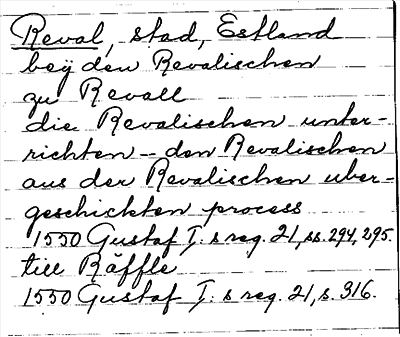 Reval, stad, Estland
beÿ den Revalischen
zu Revall
die Revalischen unter-
richten - den Revalischen
aus der Revalischen uber-
geschickten process
1550 Gustaf I: s reg. 21, ss. 294, 295.
till Räffle
1550 Gustaf I: s reg. 21, s. 316.